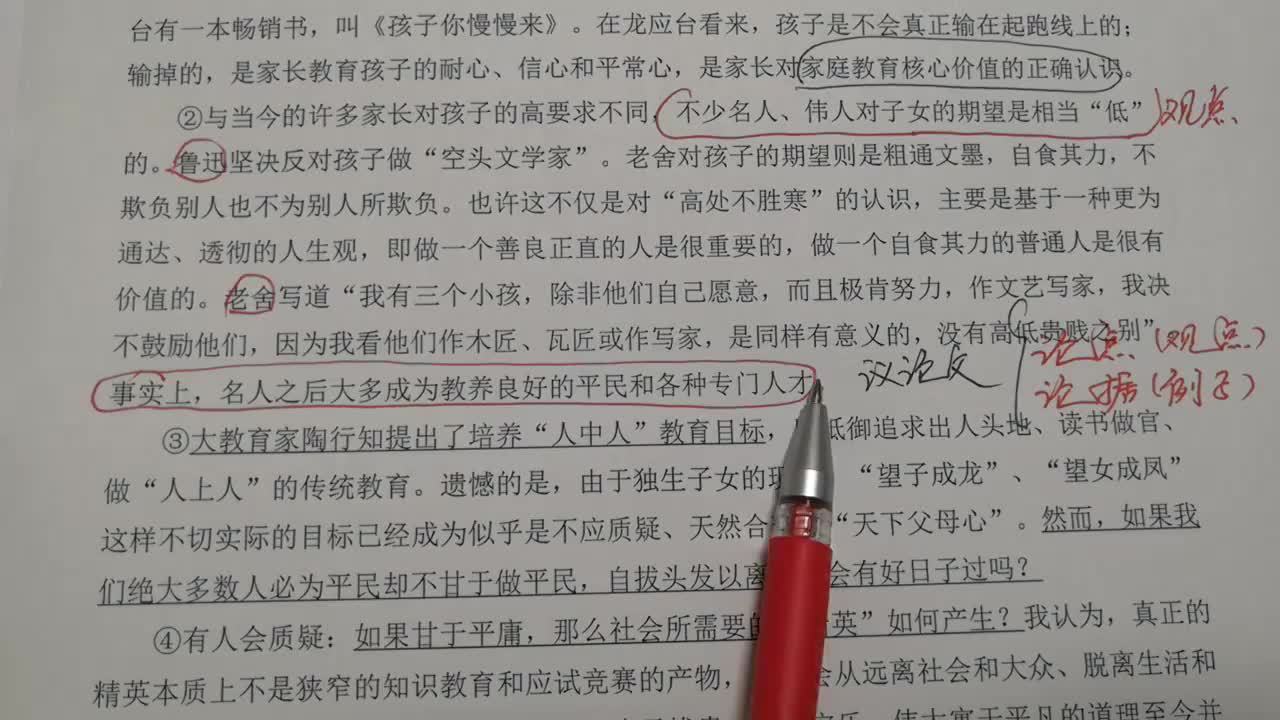 台有一本畅销书，叫《孩子你慢慢来》。在龙应台看来，孩子是不会真正输在起跑线上的；
输掉的，是家长教育孩子的耐心、信心和平常心，是家长对家庭教育核心价值的正确认识。
②与当今的许多家长对孩子的高要求不同，不少名人、伟人对子女的期望是相当“低” 观点
的。鲁迅坚决反对孩子做“空头文学家”。老舍对孩子的期望则是粗通文墨，自食其力，不
欺负别人也不为别人所欺负。也许这不仅是对“高处不胜寒”的认识，主要是基于一种更为
通达、透彻的人生观，即做一个善良正直的人是很重要的，做一个自食其力的普通人是很有
价值的。老舍写道“我有三个小孩，除非他们自己愿意，而且极肯努力，作文艺写家，我决
不鼓励他们，因为我看他们作木匠、瓦匠或作写家，是同样有意义的，没有高低贵贱之别”
事实上，名人之后大多成为教养良好的平民和各种专门人才
议论文
论点（观点）
论据（例子）
③大教育家陶行知提出了培养“人中人”教育目标，抵御追求出人头地、读书做官、
做“人上人”的传统教育。遗憾的是，由于独生子女的“望子成龙”、“望女成凤”
这样不切实际的目标已经成为似乎是不应质疑、天然合“天下父母心”。然而，如果我
们绝大多数人必为平民却不甘于做平民，自拔头发以离会有好日子过吗？
④有人会质疑：如果甘于平庸，那么社会所需要的英”如何产生？我认为，真正的
精英本质上不是狭窄的知识教育和应试竞赛的产物，会从远离社会和大众、脱离生活和
伟大寓于平凡的道理至今并